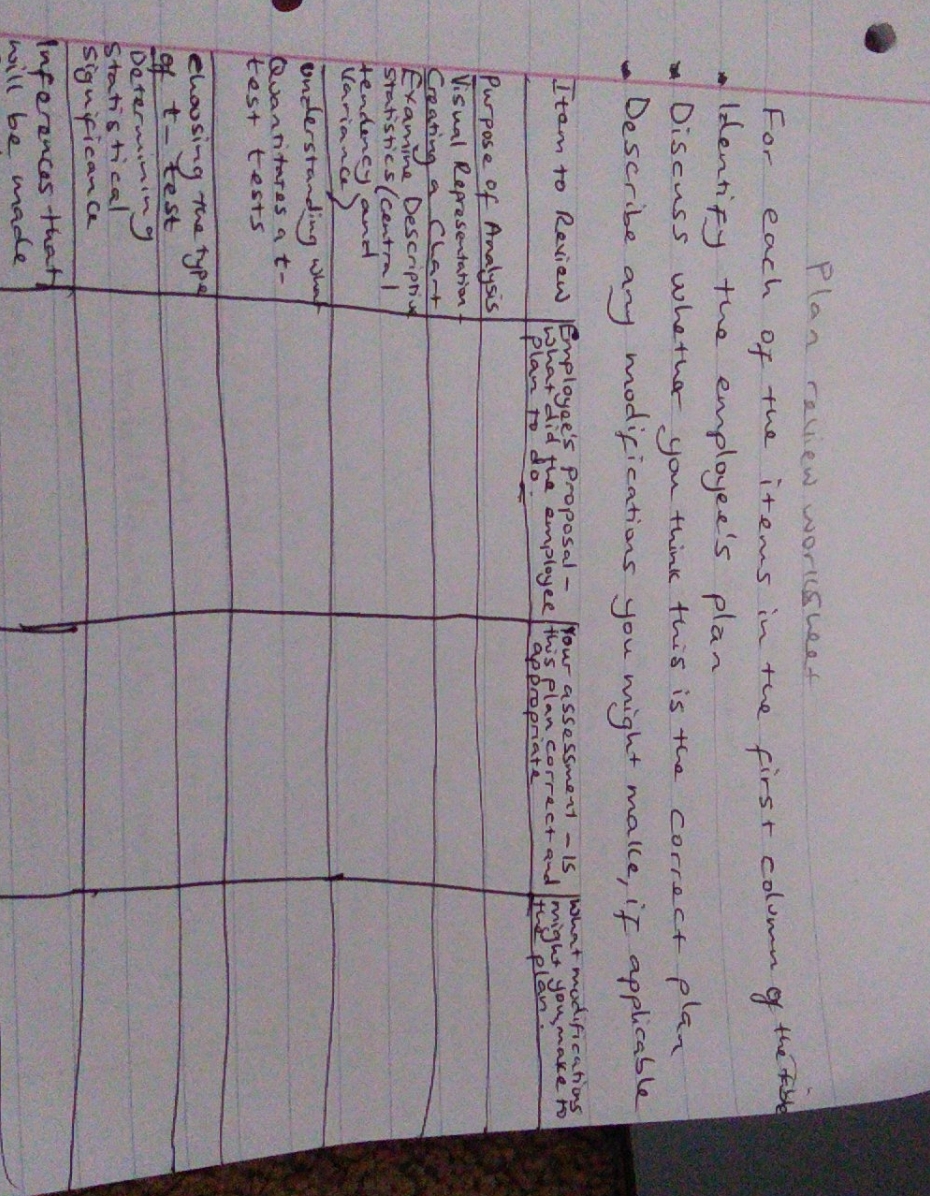 Plan review worksheet
For each of the items in the first column of the table
• Identify the employee's plan
• Discuss whether you think this is the correct plan
• Describe any modifications you might make, if applicable
Item to Review
Employee's proposal -
what did the employee
plan to do.
Your assessment - Is
this plan correct and
appropriate
What modifications
might you make to
the plan.
Purpose of Analysis
Visual Representation -
Creating a Chart
Examine Descriptive
statistics (central
tendency and
variance)
Understanding what
Quantitates a t-
test tests
Choosing the type
of t-test
Determining
Statistical
significance
Inferences that
will be made